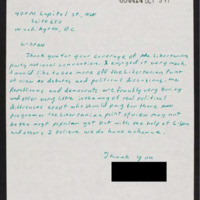 400 N. Capitol St., NW
Suite 650
Washington, DC
C-SPAN
Thank you for your coverage of the Libertarian
party national convention. I enjoyed it very much.
I would like to see more of the Libertarian point
of view on debates and political discussions. The
Republicans and democrats are frankly very boring
and offer very little in the way of real political
differences except who should pay for there new
programs. The Libertarian point of view may not
be the most popular yet but with the help of C-Span
and others I believe we do have a chance.
Thank you